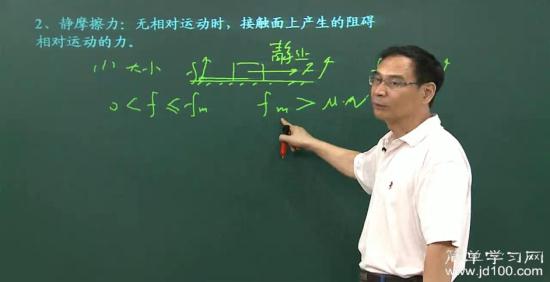 2、静摩擦力：无相对运动时，接触面上产生的阻碍
相对运动的力。
(1) 大小
静止
0 < f ≤ fm    fm > μ·N
简单学习网
www.jd100.com